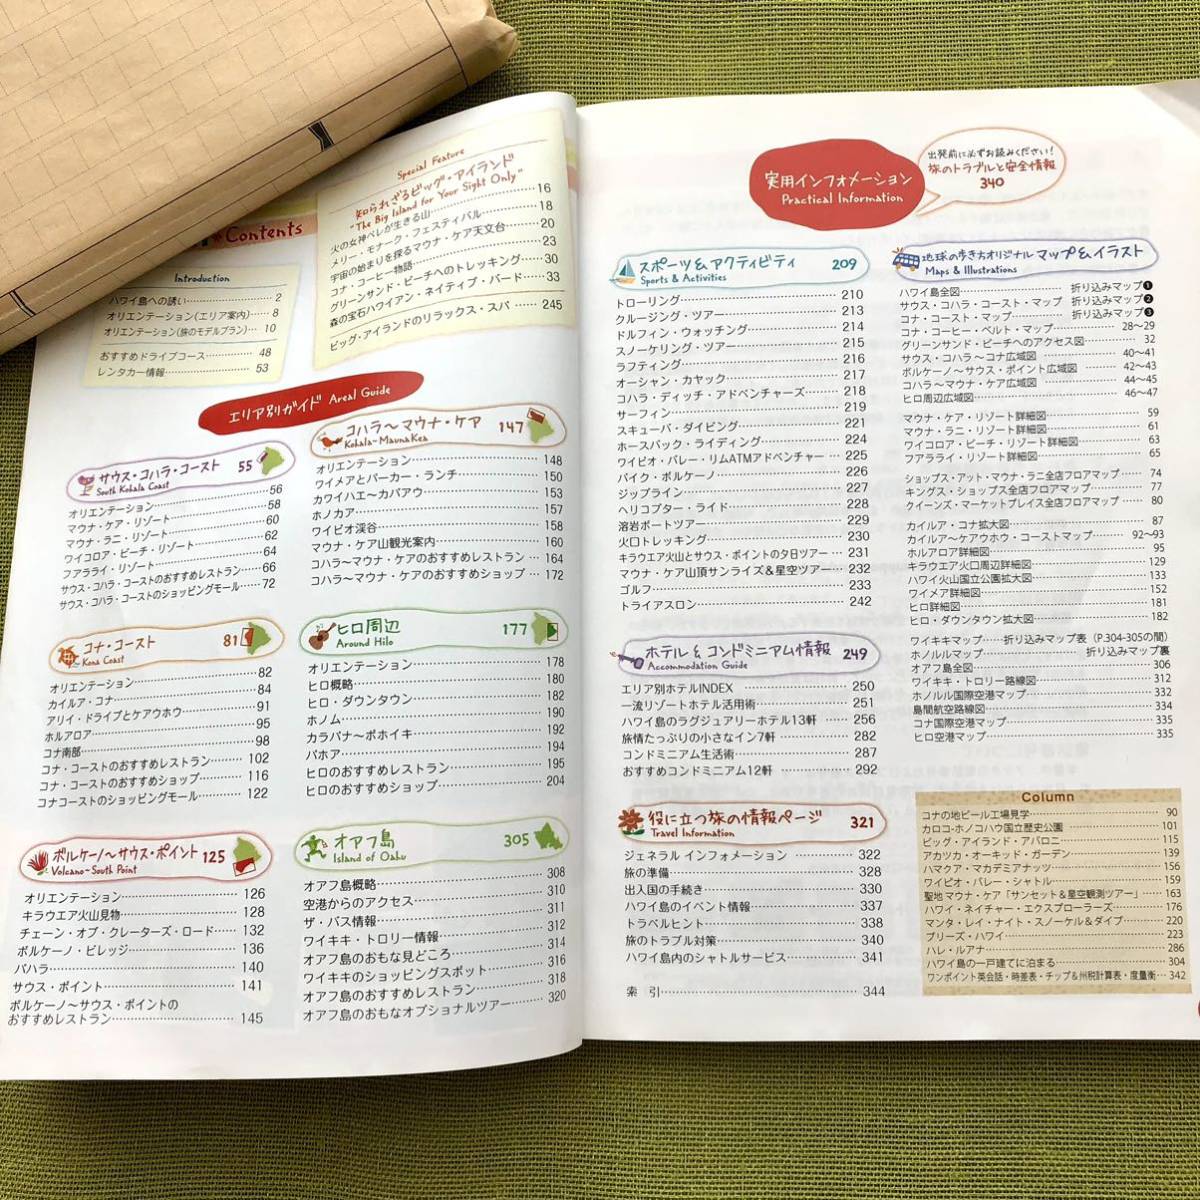 Contents
Introduction
ハワイ島への誘い 2
オリエンテーション(エリア案内) 8
オリエンテーション(旅のモデルプラン) 10
おすすめドライブコース 48
レンタカー情報 53
Special Feature
知られざるビッグ・アイランド
"The Big Island for Your Sight Only"
火の女神ペレが生きる山 16
メリー・モナーク・フェスティバル 18
宇宙の始まりを探るマウナ・ケア天文台 20
コナ・コーヒー物語 23
グリーンサンド・ビーチへのトレッキング 30
森の宝石ハワイアン・ネイティブ・バード 33
ビッグ・アイランドのリラックス・スパ 245
エリア別ガイド Areal Guide
サウス・コハラ・コースト 55
South Kohala Coast
オリエンテーション 56
マウナ・ケア・リゾート 58
マウナ・ラニ・リゾート 60
ワイコロア・ビーチ・リゾート 62
フアラライ・リゾート 64
サウス・コハラ・コーストのおすすめレストラン 66
サウス・コハラ・コーストのショッピングモール 72
コナ・コースト 81
Kona Coast
オリエンテーション 82
カイルア・コナ 84
アリイ・ドライブとケアウホウ 91
ホルアロア 95
コナ南部 98
コナ・コーストのおすすめレストラン 102
コナ・コーストのおすすめショップ 116
コナコーストのショッピングモール 122
ボルケーノ～サウス・ポイント 125
Volcano~South Point
オリエンテーション 126
キラウエア火山見物 128
チェーン・オブ・クレーターズ・ロード 132
ボルケーノ・ビレッジ 136
パハラ 140
サウス・ポイント 141
ボルケーノ～サウス・ポイントの
おすすめレストラン 145
コハラ～マウナ・ケア 147
Kohala~Mauna Kea
オリエンテーション 148
ワイメアとパーカー・ランチ 150
カワイハエ～カパアウ 153
ホノカア 157
ワイピオ渓谷 158
マウナ・ケア山観光案内 160
コハラ～マウナ・ケアのおすすめレストラン 164
コハラ～マウナ・ケアのおすすめショップ 172
ヒロ周辺 177
Around Hilo
オリエンテーション 178
ヒロ概略 180
ヒロ・ダウンタウン 182
ホノム 190
カラパナ～ポホイキ 192
パホア 194
ヒロのおすすめレストラン 195
ヒロのおすすめショップ 204
オアフ島 305
Island of Oahu
オアフ島概略 308
空港からのアクセス 310
ザ・バス情報 311
ワイキキ・トロリー情報 312
オアフ島のおもな見どころ 314
ワイキキのショッピングスポット 316
オアフ島のおすすめレストラン 318
オアフ島のおもなオプショナルツアー 320
実用インフォメーション
Practical Information
出発前に必ずお読みください!
旅のトラブルと安全情報
340
スポーツ&アクティビティ 209
Sports & Activities
トローリング 210
クルージング・ツアー 213
ドルフィン・ウォッチング 214
スノーケリング・ツアー 215
ラフティング 216
オーシャン・カヤック 217
コハラ・ディッチ・アドベンチャーズ 218
サーフィン 219
スキューバ・ダイビング 221
ホースバック・ライディング 224
ワイピオ・バレー・リムATMアドベンチャー 225
バイク・ボルケーノ 226
ジップライン 227
ヘリコプター・ライド 228
溶岩ボートツアー 229
火口トレッキング 230
キラウエア火山とサウス・ポイントの夕日ツアー 231
マウナ・ケア山頂サンライズ&星空ツアー 232
ゴルフ 233
トライアスロン 242
ホテル&コンドミニアム情報 249
Accommodation Guide
エリア別ホテルINDEX 250
一流リゾートホテル活用術 251
ハワイ島のラグジュアリーホテル13軒 256
旅情たっぷりの小さなイン7軒 282
コンドミニアム生活術 287
おすすめコンドミニアム12軒 292
役に立つ旅の情報ページ 321
Travel Information
ジェネラル インフォメーション 322
旅の準備 328
出入国の手続き 330
ハワイ島のイベント情報 337
トラベルヒント 338
旅のトラブル対策 340
ハワイ島内のシャトルサービス 341
索 引 344
地球の歩き方オリジナル マップ&イラスト
Maps & Illustrations
ハワイ島全図 折り込みマップ❶
サウス・コハラ・コースト・マップ 折り込みマップ❷
コナ・コースト・マップ 折り込みマップ❸
コナ・コーヒー・ベルト・マップ 28～29
グリーンサンド・ビーチへのアクセス図 32
サウス・コハラ～コナ広域図 40～41
ボルケーノ・サウス・ポイント広域図 42～43
コハラ～マウナ・ケア広域図 44～45
ヒロ周辺広域図 46～47
マウナ・ケア・リゾート詳細図 59
マウナ・ラニ・リゾート詳細図 61
ワイコロア・ビーチ・リゾート詳細図 63
フアラライ・リゾート詳細図 65
ショップス・アット・マウナ・ラニ全店フロアマップ 74
キングス・ショップス全店フロアマップ 77
クイーンズ・マーケットプレイス全店フロアマップ 80
カイルア・コナ拡大図 87
カイルア～ケアウホウ・コーストマップ 92～93
ホルアロア詳細図 95
キラウエア火口周辺詳細図 129
ハワイ火山国立公園拡大図 133
ワイメア詳細図 152
ヒロ詳細図 181
ヒロ・ダウンタウン拡大図 182
ワイキキマップ 折り込みマップ表 (P.304-305の間)
ホノルルマップ 折り込みマップ裏
オアフ島全図 306
ワイキキ・トロリー路線図 312
ホノルル国際空港マップ 332
島間航空路線図 334
コナ国際空港マップ 335
ヒロ空港マップ 335
Column
コナの地ビール工場見学 90
カロコ・ホノコハウ国立歴史公園 101
ビッグ・アイランド・アバロニ 115
アカツカ・オーキッド・ガーデン 139
ハマクア・マカデミアナッツ 156
ワイピオ・バレー・シャトル 159
聖地マウナ・ケア「サンセット&星空観測ツアー」 163
ハワイ・ネイチャー・エクスプローラーズ 176
マンタ・レイ・ナイト・スノーケル&ダイブ 220
ブリーズ・ハワイ 223
ハレ・ルアナ 286
ハワイ島の一戸建てに泊まる 304
ワンポイント英会話・時差表・チップ&州税計算表・度量衡 342